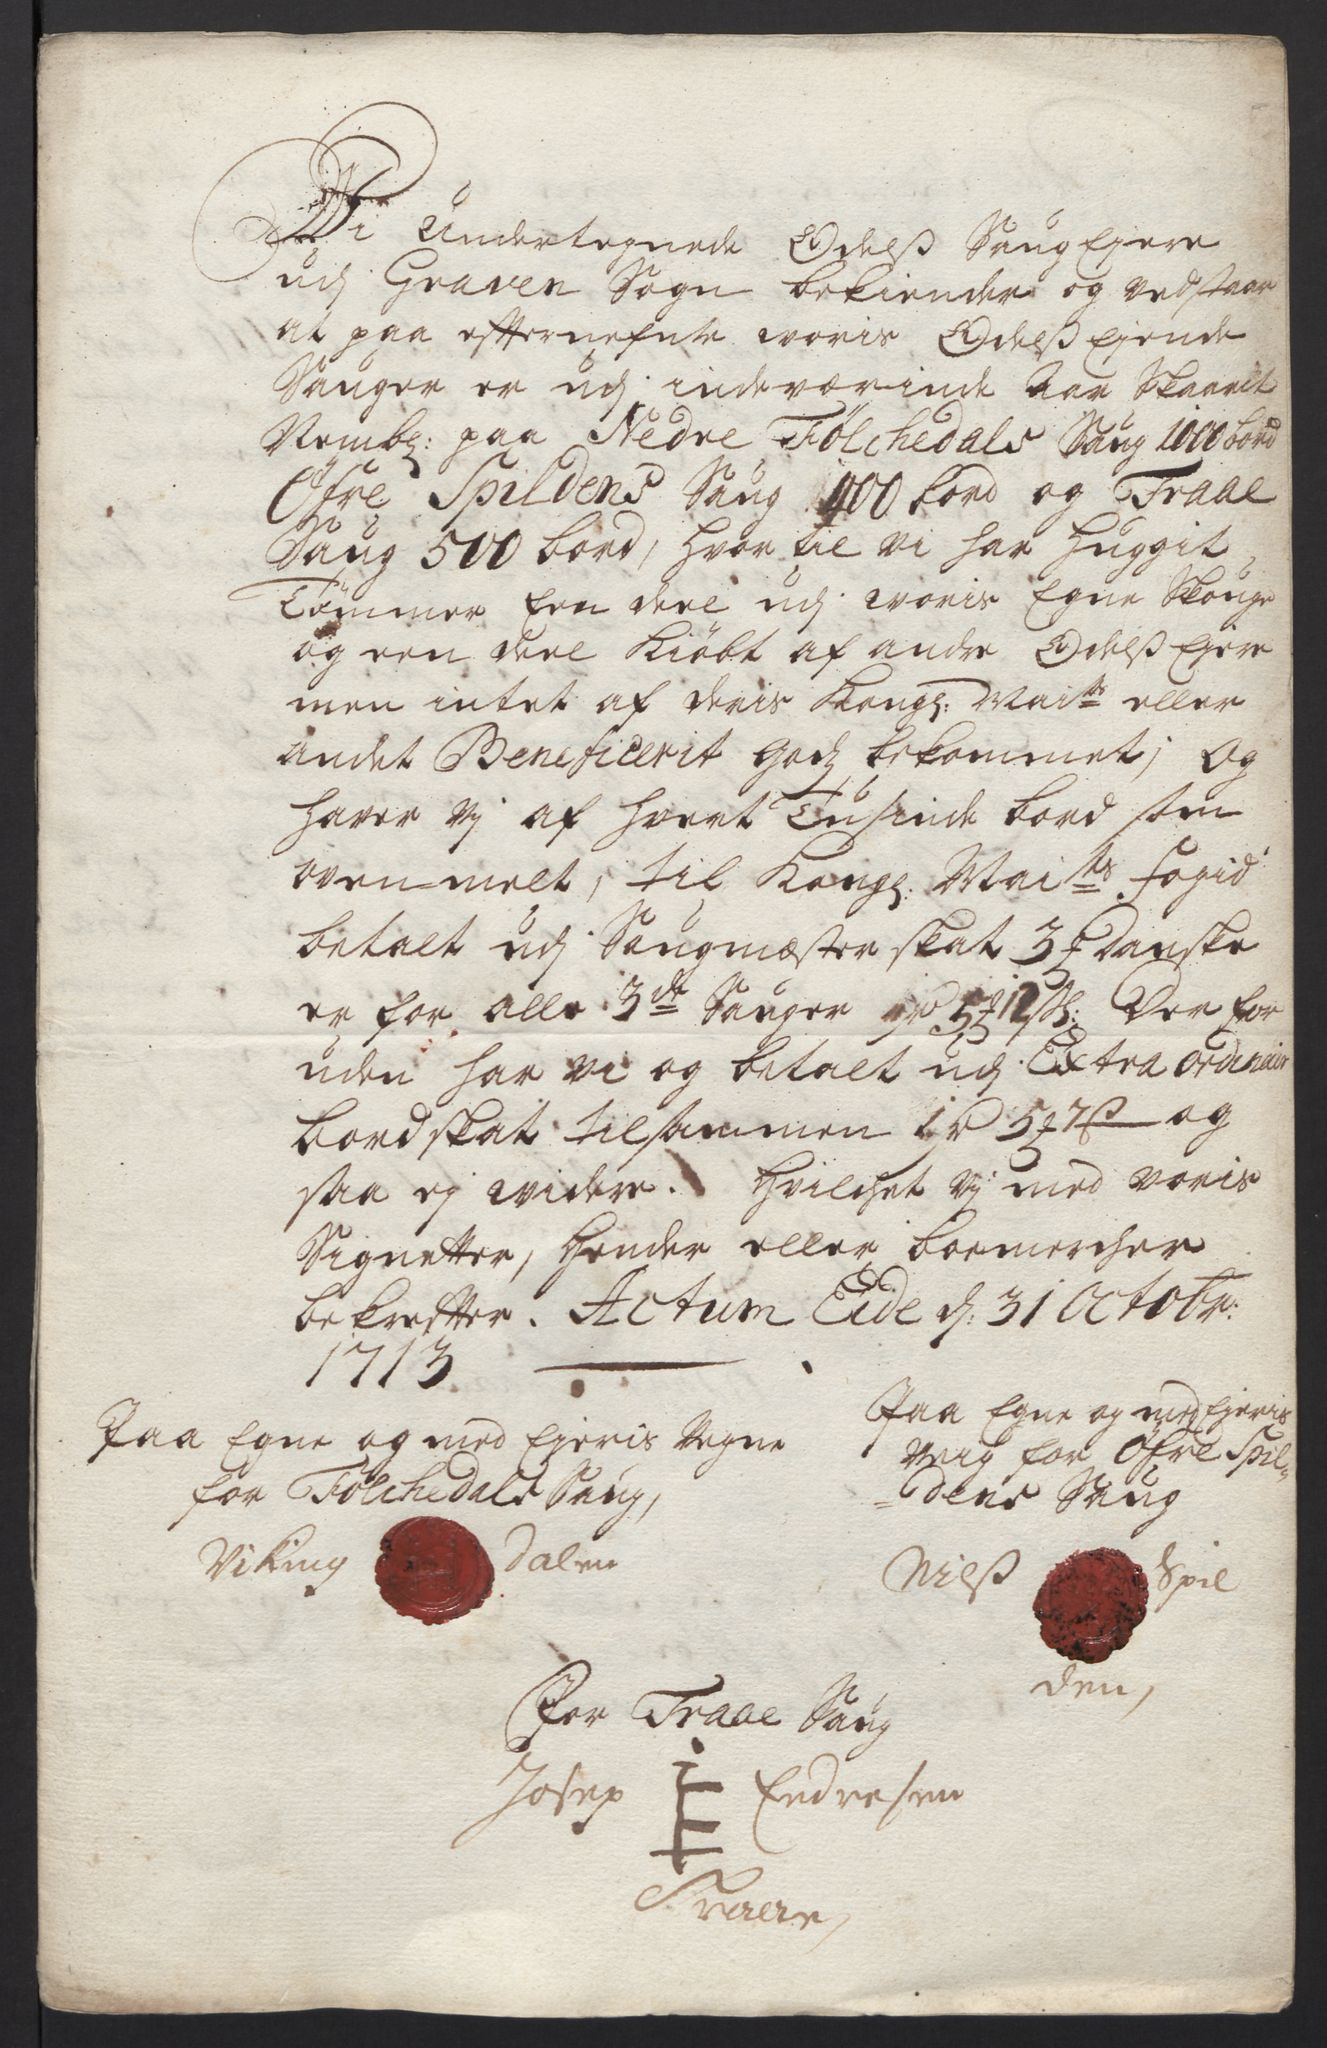 Wi Undertegnede Odelß Saug Ejere
udj Graven Sogn bekiender og vedstaar
at paa efternefnte woris Odelß Ejende
Sauger er udj indeværinde Aar Skaarit
Nembl: paa Nedre Fölchedals Saug 1000 bord
Öfre Spildens Saug 400 bord og Traae
Saug 500 bord, hvor til vi har huggit
Tömmer Een deel udj woris Egne Skouge
og een deel kiöbt af andre Odelß Ejere
men intet af deris Kongl: Maits eller
andet Beneficerit godz bekommet; Og
haver vj af hvert Tusinde bord som
ovenmelt, til Kongl: Maits fogid
betalt udj Saugmæster skat 3 Danske
er for alle 3de Sauger 5 12 ß: Der for
uden har vi og betalt udj Extra ordinair
bordskat tilsammen 1 5 7 ß og
saa ej widere. Hvilchet vj med voris
Signetter, Hender eller boemercher
bekrefter. Actum Eide d: 31 Octobr:
1713
Paa Egne og med Ejeris Vegne
for Fölchedals Saug,
Viking Dalen
Paa Egne og med Ejeris
Veig for Öfre Spil=
=dens Saug
Nilß Spil
den,
For Traae Saug
Josep Endresen
Traae,